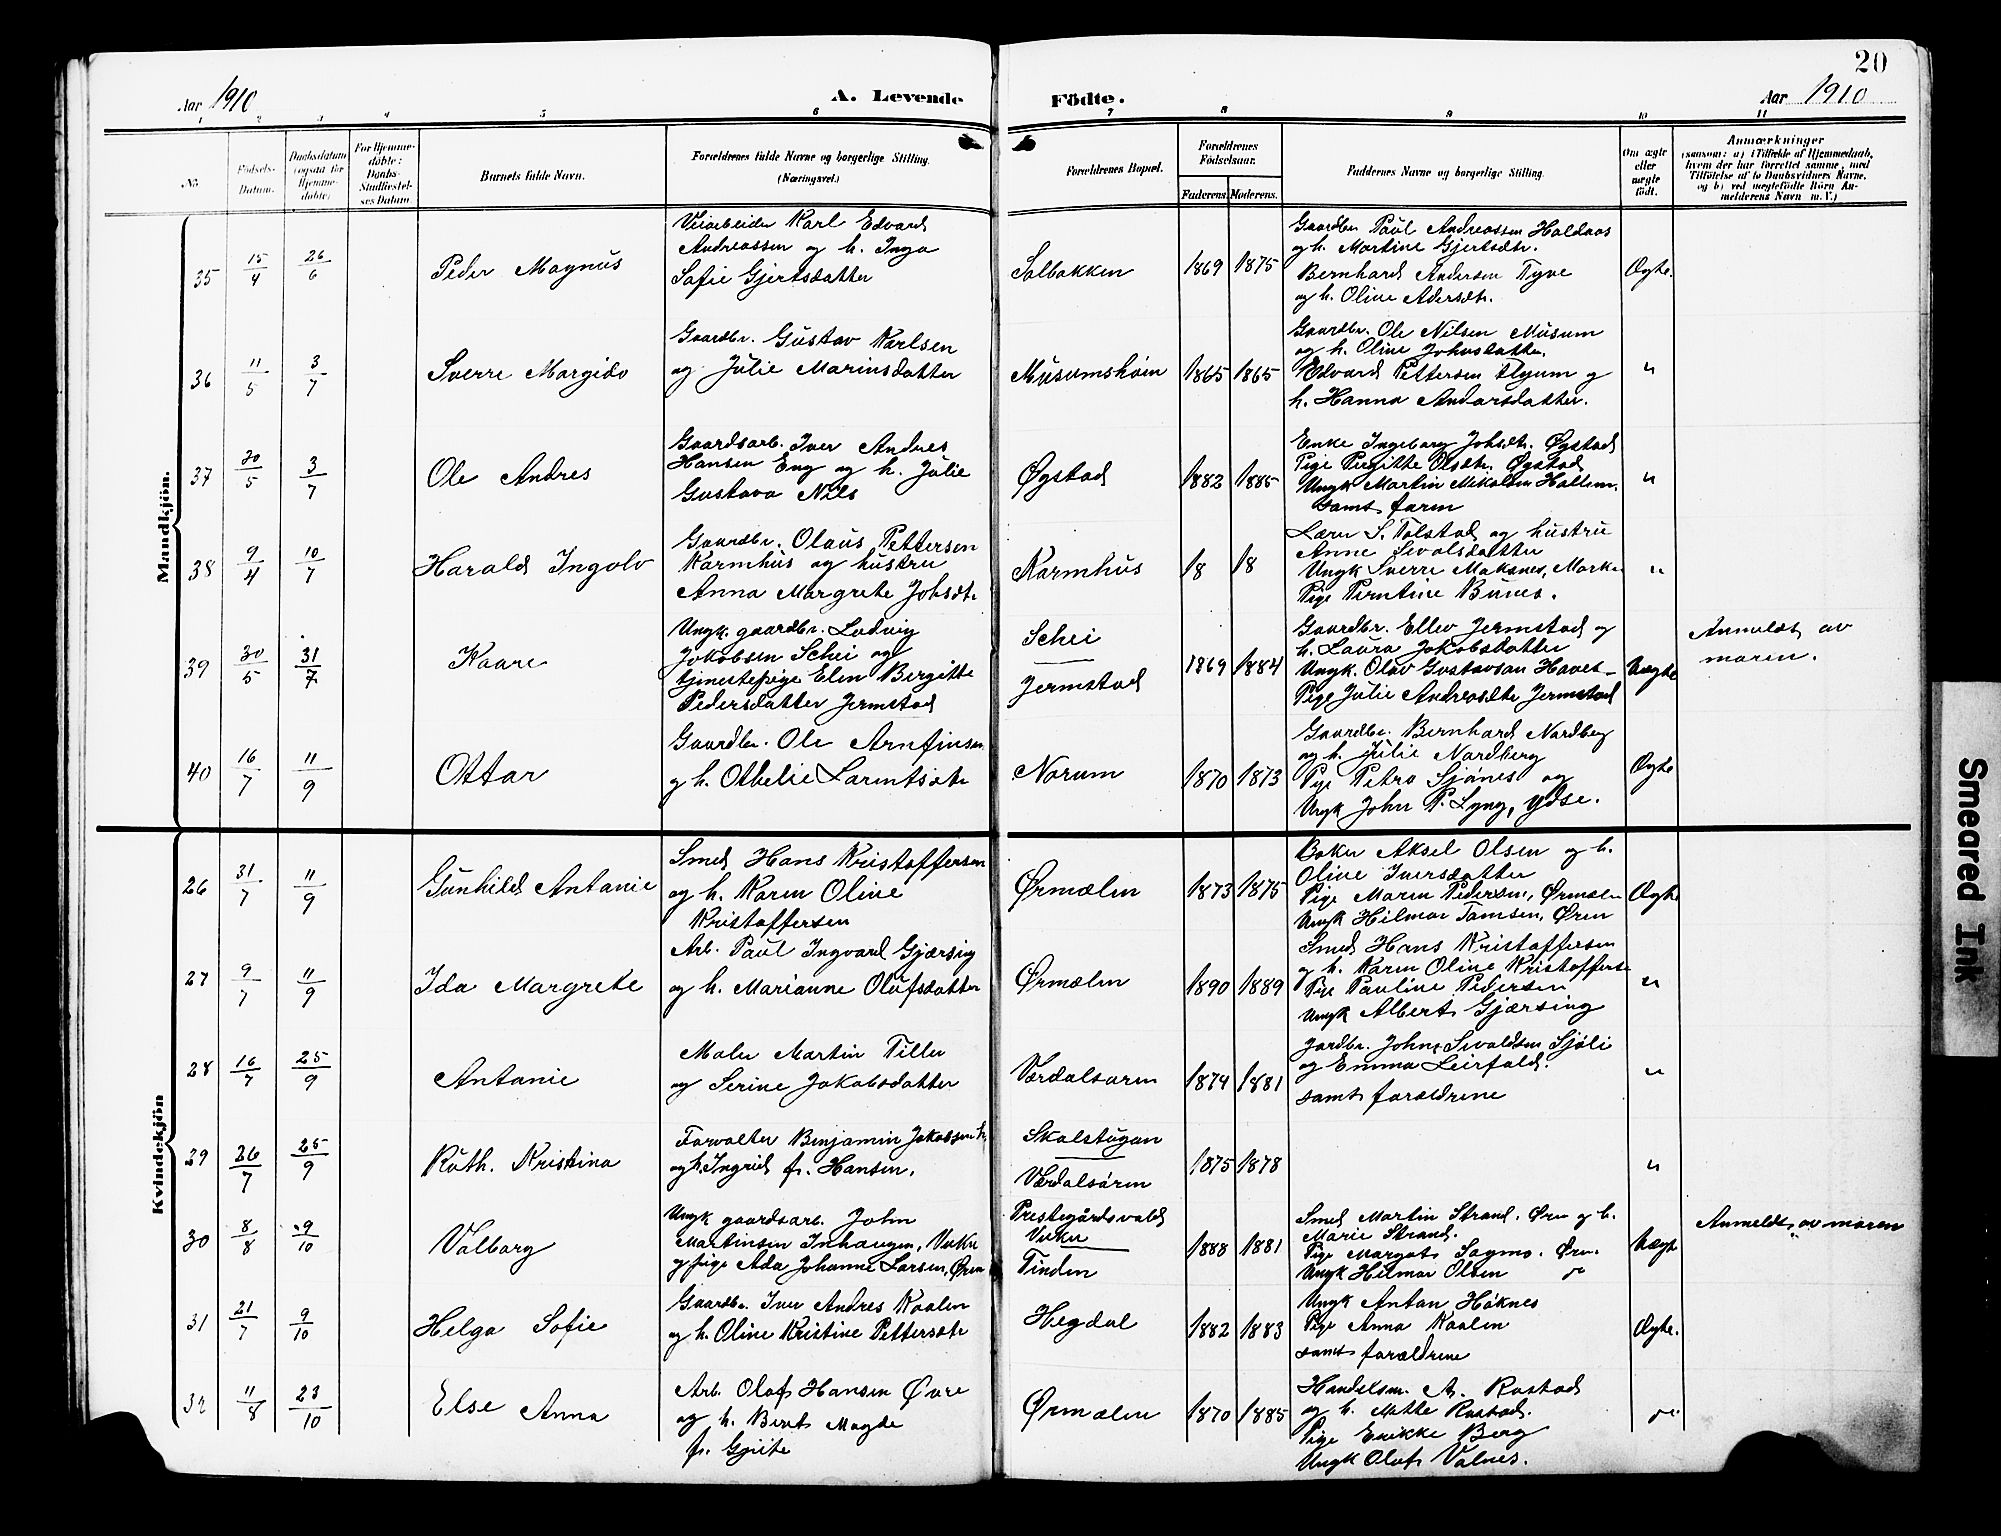 20
Aar 1910
A. Levende
Födte.
Aar 1910
1 2 3 4 5 6 7 8 9 10 11
Nr.
Födsels-Datum.
Daabsdatum (ogsaa for Hjemme-döbte)
For Hjemme-döbte: Daabs-Stadfæstelses Datum
Barnets fulde Navn.
Forældrenes fulde Navne og borgerlige Stilling. (Næringsvei.)
Forældrenes Bopæl.
Forældrenes Födselsaar.
Faderens. Moderens.
Faddernes Navne og borgerlige Stilling.
Om ægte eller uægte födt.
Anmærkninger
(saasom: a) i Tilfælde af Hjemmedaab,
hvem der har forrettet samme, med
Tilföielse af to Daabsvidners Navne,
og b) ved uægtefödte Börn An-
melderens Navn m. V.)
Mandkjön.
35
15/4
26/6
Peder Magnus
Veiarbeider Karl Edvard
Andreassen og h. Inga
Sofie Gjertsdatter
Solbakken
1869 1875
Gaardbr. Paul Andreassen Haldaas
og h. Martine Gjertsdtr.
Bernhard Andersen Tyve
og h. Oline Adersdtr.
Ægte.
36
11/5
3/7
Sverre Margido
Gaardbr. Gustav Karlsen
og Julie Marinsdatter
Musumshöin
1865 1865
Gaardbr. Ole Nilsen Musum
og h. Oline Johnsdatter.
Edvard Pettersen Flyum g
h. Hanna Andorsdatter.
"
37
30/5
3/7
Ole Andres
Gaardsarb. Iver Andres
Hansen Eng og h. Julie
Gustava Nils
Øgstad
1882 1885
Enke Ingeborg Johsdtr. Øgstad
Pige Birgitte Olsdtr. Øgstad
Ungk Martin Mikalsen Hallem.
samt faren
"
38
9/4
10/7
Harald Ingolv
Gaardbr. Olaus Pettersen
Karmhus og hustru
Anna Margrete Johsdtr
Karmhus
18 18
Lærer S. Tolstad og hustru
Anne Sivalsdatter
Ungk Sverre Maksnes, Marke
Pige Berntine Bunes.
"
39
30/5
31/7
Kaare
Ungk. gaardbr. Ludvig
Jokobsen Schei og
tjenestepige Elen Bergitte
Pedersdatter Jermstad
Schei
Jermstad
1869 1884
Gaardbr. Ellev Jermstad og
h. Laura Jakobsdatter
Ungk. Olav Gustavsen
Pige Julie Andreasdtr Jermstad
Uægte
Anmeldt av
moren.
40
16/7
11/9
Ottar
Gaardbr. Ole Arntinsen
og h. Othelie Larentsdtr
Norum
1870 1873
Gaardbr. Bernhard Nordberg
og h. Julie Nordberg
Pige Petra Sjönes og
Ungk John P. Lyng, Ydse.
Ægte
Kvindekjön
26
31/7
11/9
Gunhild Antonie
Smed Hans Kristoffersen
og h. Karen Oline
Kristoffersen
Ørmælen
1873 1875
Baker Aksel Olsen og h.
Oline Iversdatter
Pige Maren Pedersen, Ørmælen
Ungk Hilmar Tomsen, Øren
Ægte
27
9/7
11/9
Ida Margrete
Arb. Paul Ingvard Gjærsing
og h. Marianne Olufsdatter
Ørmælen
1890 1889
Smed Hans Kristoffersen
og h. Karen Oline Kristofferse
Pige Pauline Pedersen
Ungk Albert Gjærsing
"
28
16/7
25/9
Antonie
Maler Martin Tiller
og Serine Jakobsdatter
Værdalsøren
1874 1881
Jordbr. John Sivaldsen Sjöli
og Emma Leirfald.
samt forældrene
"
29
26/7
25/9
Ruth. Kristina
Forvalter Benjamin Jakobsen
og h. Ingrid f. Hansen.
Skalstugan
Værdalsøren
1875 1878
"
30
8/8
9/10
Valborg
Ungk gaardsarb. John
Martinsen Inhaugen, Vuku
og pige Ada Johanne Larsen, Øren
Prestegårdsvald
Vuku
Tinden
1888 1881
Smed Martin Strand. Øren og h.
Marie Strand.
Pige Margot Sagmo. Øren.
Ungk Hilmar Olsen
Uægte
Anmeldt av moren
31
21/7
9/10
Helga Sofie
Gaardbr. Iver Andres Kaalen
og h. Oline Kristine Pettersdtr
Hegdal
1882 1883
Ungk Anton Høknes
Pige Anna Kaalen
samt forældrene
Ægte.
32
11/8
23/10
Else Anna
Arb. Olaf Hansen Övre
og h. Berit Magda
Ørmælen
1870 1885
Handelsm. A. Rostad
og h. Mette Rostad.
Pige Enikke Berg
Ungk Olaf Valnes.
Smeared Ink